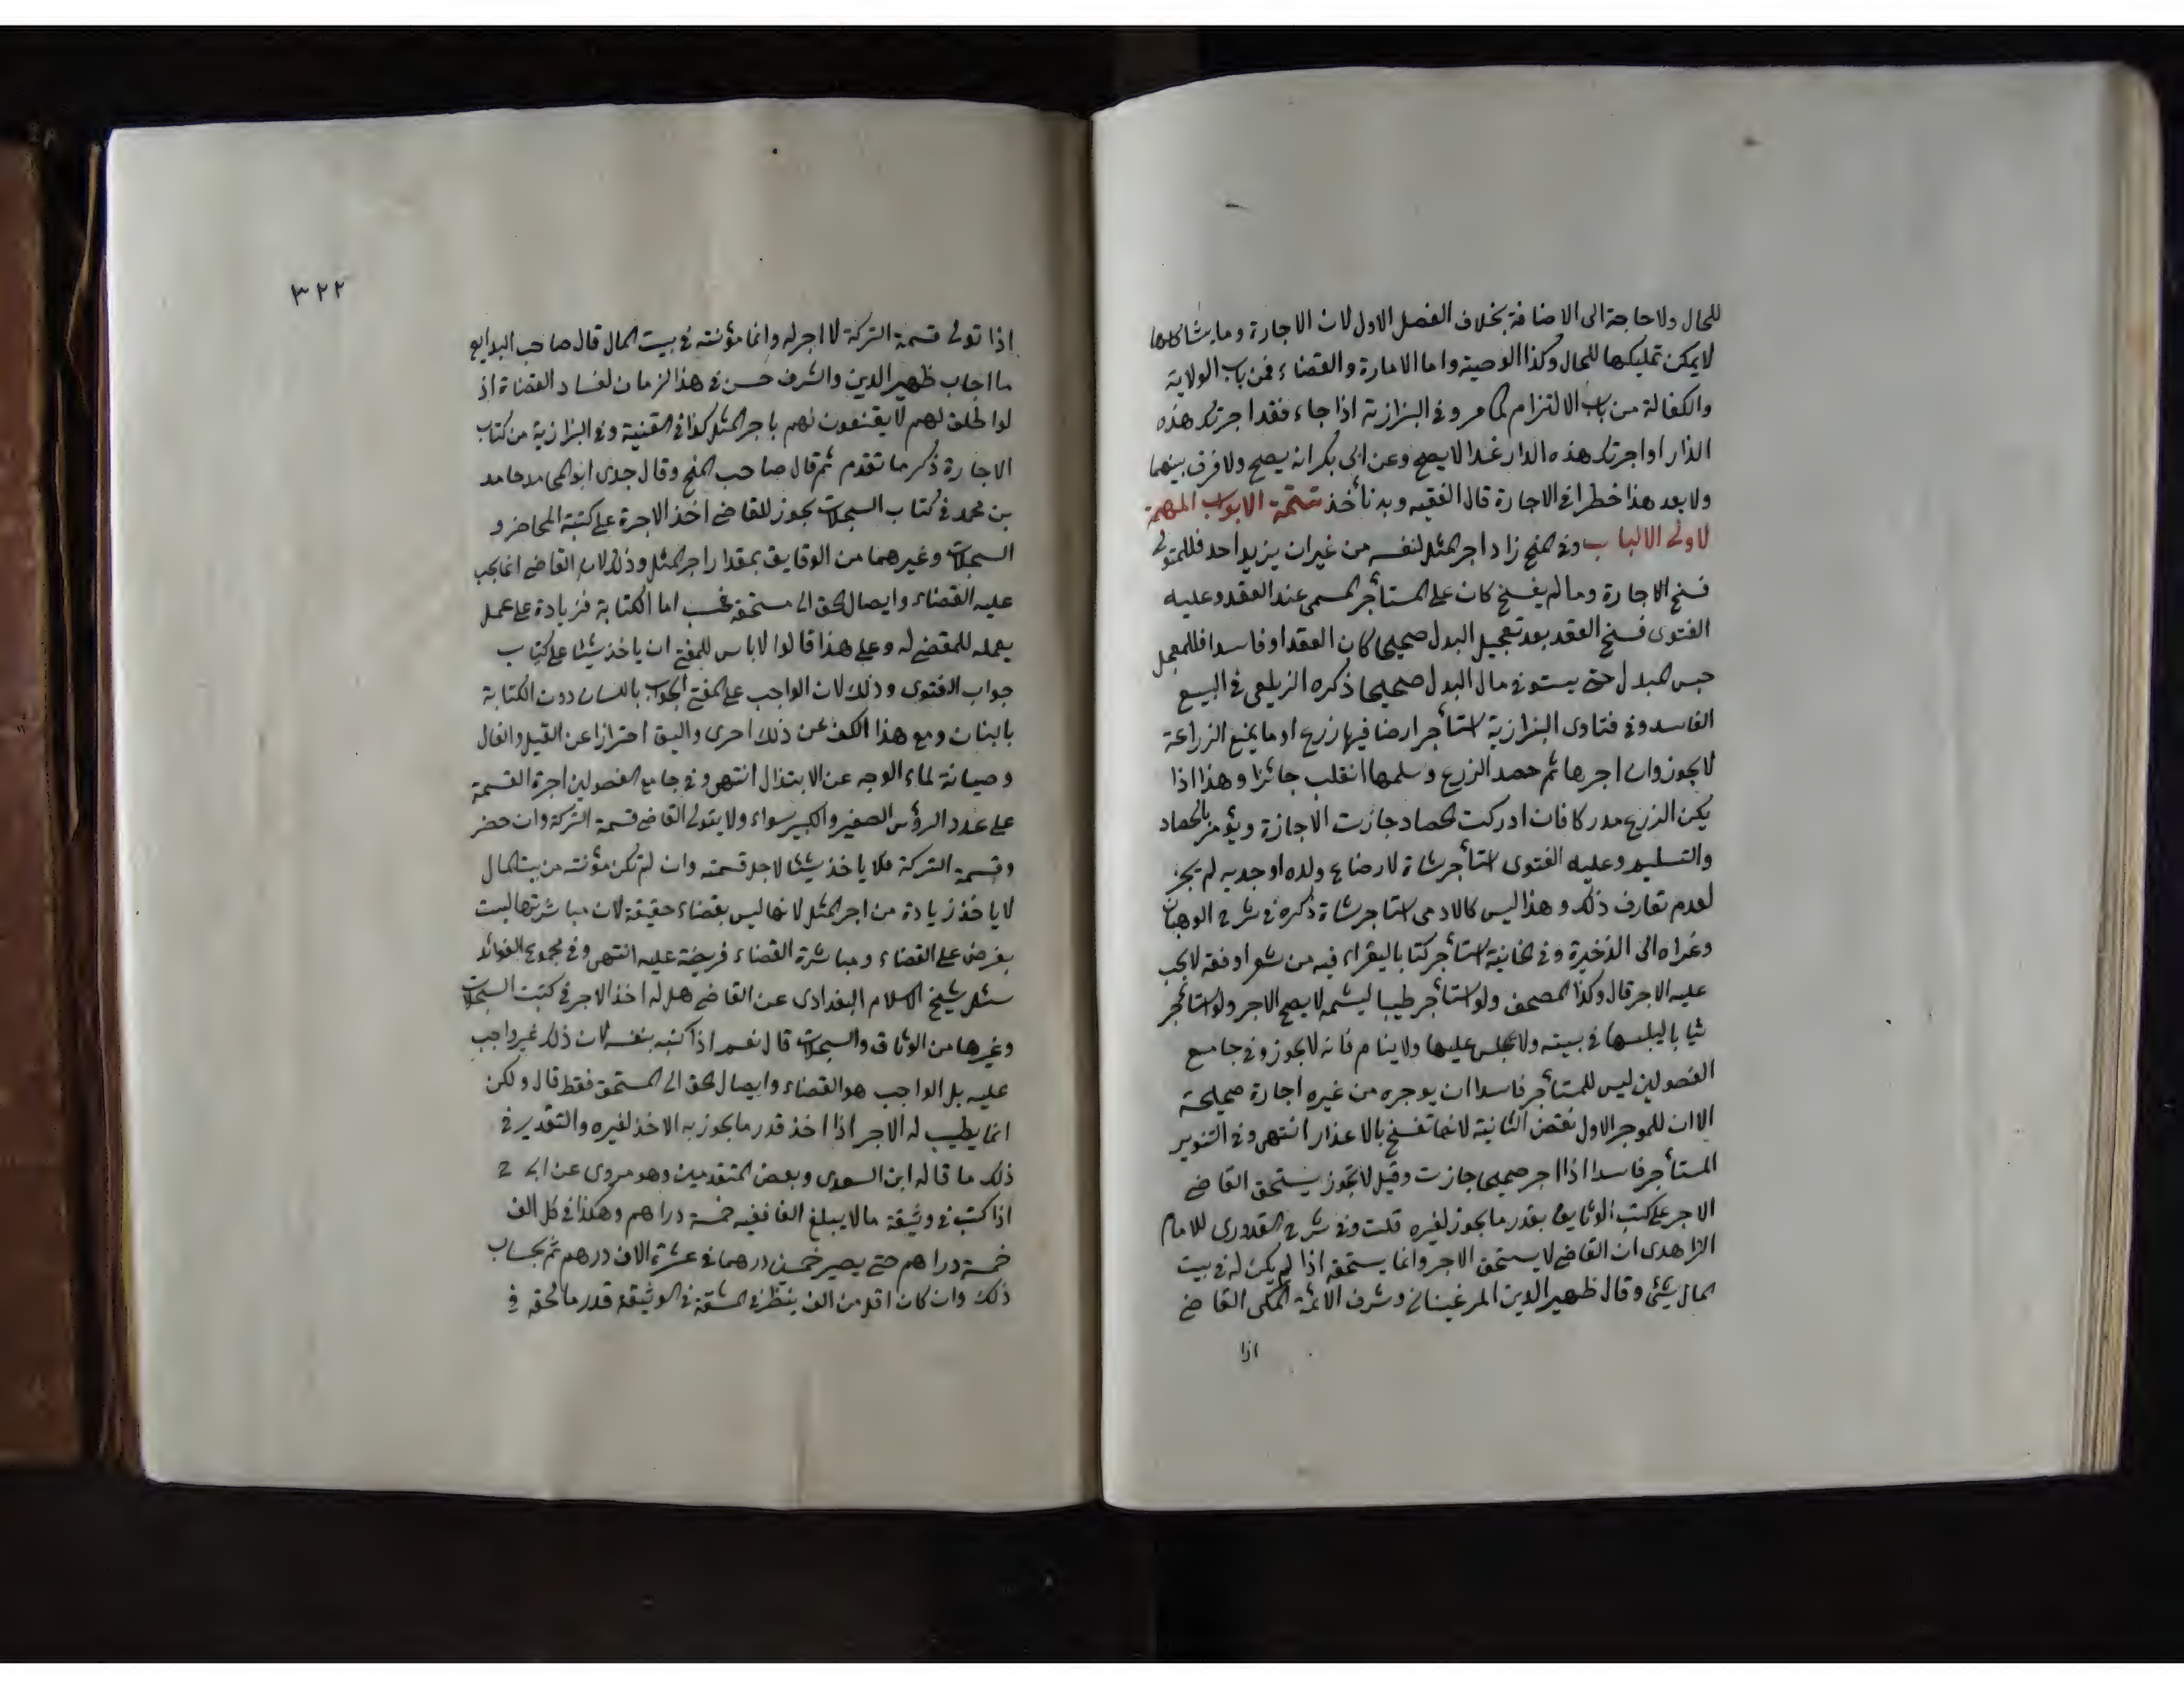 للحال ولا حاجة الى الاضافة بخلاف الفصل الاول لان الاجارة وما يشاكلها
لا يمكن تمليكها للحال وكذا الوصية واما الامارة والقضاء فمن باب الولاية
والكفالة من باب الالتزام لما مر وفي البزازية اذا جاء فقد اجرتك هذه
الدار او اجرتك هذه الدار غدا لا يصح وعن ابي بكر انه يصح ولا فرق بينهما
ولا يعد هذا خطرا في الاجارة قال الفقيه وبه نأخذ تتمة الابواب المهمة
لاولى الالباب وفي المنح زاد اجر المثل لنفسه من غير ان يزيد احد فللمتولى
فسخ الاجارة وما لم يفسخ كان على المستأجر المسمى عند العقد وعليه
الفتوى فسخ العقد بعد تعجيل البدل صحيحا كان العقد او فاسدا فللمعجل
حبس المبدل حتى يستوفي مال البدل صحيحا ذكره الزيلعي في البيع
الفاسد وفي فتاوى البزازية استأجر ارضا فيها زرع او ما يمنع الزراعة
لا يجوز وان اجرها ثم حصد الزرع وسلمها انقلب جائزا وهذا اذا
يكن الزرع مدركا فان ادركت الحصاد جازت الاجازة ويؤمر بالحصاد
والتسليم وعليه الفتوى استأجر شاة لارضاع ولده او جديه لم يجز
لعدم تعارف ذلك وهذا ليس كالادمى استاجر شاة ذكره في شرح الوهبان
وغراه الى الذخيرة وفي الخانية استأجر كتابا ليقراء فيه من شعر او فقه لا يجب
عليه الاجر قال وكذا المصحف ولو استأجر طيبا ليشمه لا يصح الاجر ولو استأجر
ثيابا ليلبسها في بيته ولا يجلس عليها ولا ينام فانه لا يجوز وفي جامع
الفصولين ليس للمستأجر فاسدا ان يوجره من غيره اجارة صحيحة
الا ان للموجر الاول نقض الثانية لانها تفسخ بالاعذار انتهى وفي التنوير
المستأجر فاسدا اذا اجر صحيحا جازت وقيل لا تجوز يستحق القاضي
الاجر على كتب الوثايق بقدر ما يجوز لغيره قلت وفي شرح القدوري للامام
الزاهدى ان القاضي لا يستحق الاجر وانما يستحقه اذا لم يكن له في بيت
المال شئ وقال ظهير الدين المرغيناني وشرف الائمة المكى القاضي
اذا
٣٢٢
اذا تولى قسمة التركة لا اجر له وانما مؤنته في بيت المال قال صاحب البدايع
ما اجاب ظهير الدين والشرف حسن في هذا الزمان لفساد القضاة اذ
لو اطلق لهم لا يقنعون لهم باجر المثل كذا في القنية وفي البزازية من كتاب
الاجارة ذكر ما تقدم ثم قال صاحب المنح وقال جدى ابو المحامد حامد
بن محمد في كتاب السجلات يجوز للقاضي اخذ الاجرة على كتبة المحاضر و
السجلات وغيرهما من الوقايق بمقدار اجر المثل وذلك لان القاضي انما يجب
عليه القضاء وايصال الحق الى مستحقه فحسب اما الكتابة فزيادة على عمل
يعمله للمقضي له وعلى هذا قالوا لا باس للمفتى ان ياخذ شيئا على كتاب
جواب الفتوى وذلك لان الواجب على المفتى الجواب باللسان دون الكتابة
بالبنان ومع هذا الكف عن ذلك احرى واليق احترازا عن القيل والقال
وصيانة لماء الوجه عن الابتذال انتهى وفي جامع الفصولين اجرة القسمة
على عدد الرؤس الصغير والكبير سواء ولا يتولى القاضي قسمة التركة وان حضر
وقسمة التركة فلا ياخذ شيئا لاجل قسمته وان لم تكن مؤنته من بيت المال
لا ياخذ زيادة من اجر المثل لانها ليس بقضاء حقيقة لان مباشرتها ليست
بفرض على القضاء ومباشرة القضاء فريضة عليه انتهى وفي مجموع الفوائد
سئل شيخ الاسلام البغدادى عن القاضي هل له اخذ الاجر في كتبت السجلات
وغيرها من الوثاق والسجلات قال نعم اذا كتبه بنفسه لان ذلك غير واجب
عليه بل الواجب هو القضاء وايصال الحق الى المستحق فقط قال ولكن
انما يطيب له الاجر اذا اخذ قدر ما يجوز به الاخذ لغيره والتقدير في
ذلك ما قاله ابن السعدى وبعض المتقدمين وهو مروى عن ابى ح
اذا كتب في وثيقة مالا يبلغ الفا ففيه خمسة دراهم وهكذا في كل الف
خمسة دراهم حتى يصير خمسين درهما في عشرة الاف درهم ثم بحساب
ذلك وان كان اقل من الف ينظر في المشقة في الوثيقة قدر ما لحقه في